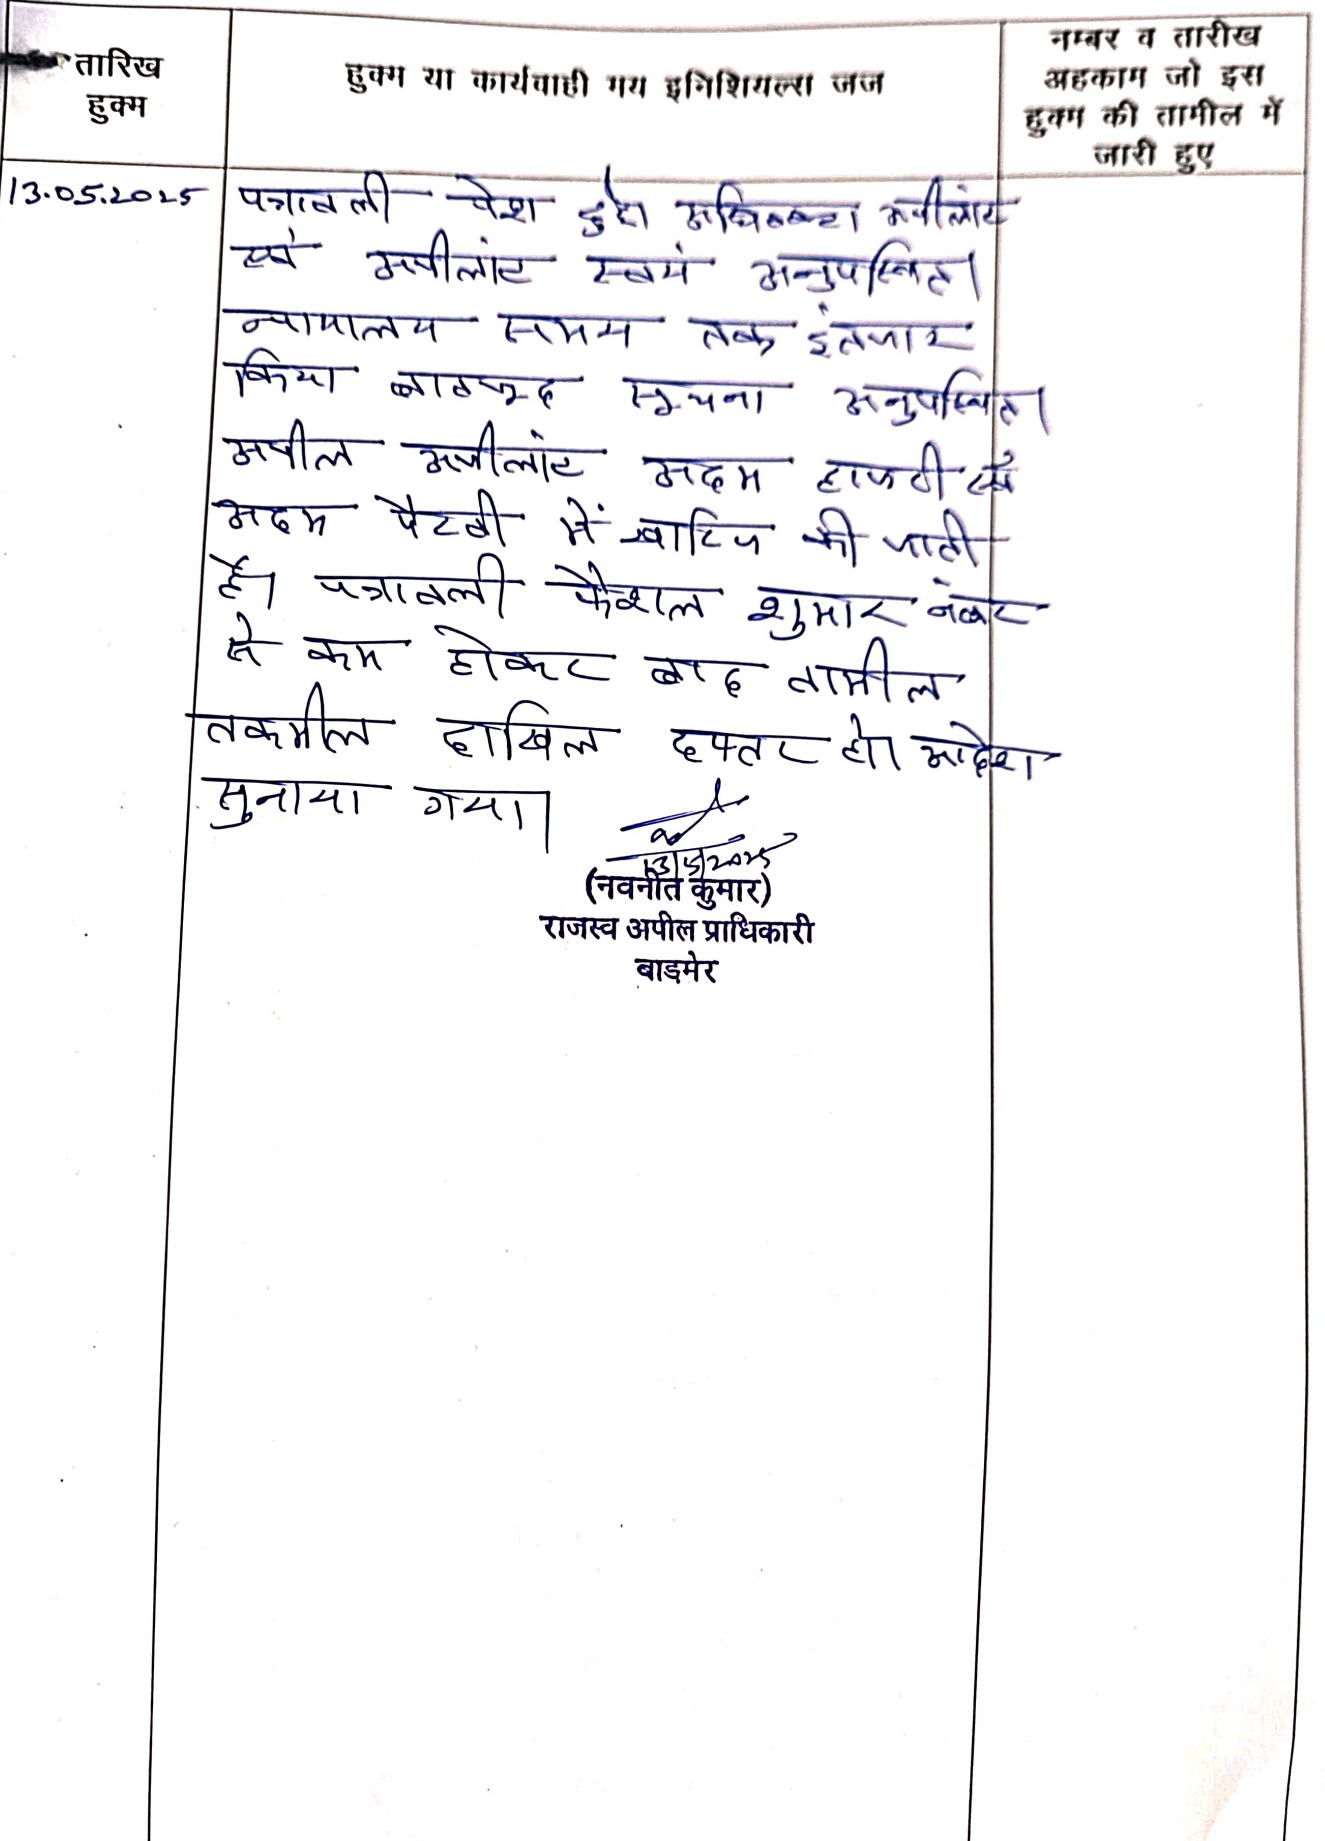 तारिख
हुक्म
हुक्म या कार्यवाही मय इनिशियल्स जज
नम्बर व तारीख
अहकाम जो इस
हुक्म की तामील में
जारी हुए
13.05.2025
पत्रावली पेश हुई। अधिवक्ता अपीलांट
एवं अपीलांट स्वयं अनुपस्थित।
न्यायालय समय तक इंतजार
किया बावजूद सूचना अनुपस्थित।
अपील अपीलांट अदम हाजरी एवं
अदम पैरवी में खारिज की जाती
है। पत्रावली फैशल शुमार नंबर
से कम होकर बाद तामील
तकमील दाखिल दफ्तर हो। आदेश
सुनाया गया।
13/5/2025
(नवनीत कुमार)
राजस्व अपील प्राधिकारी
बाड़मेर